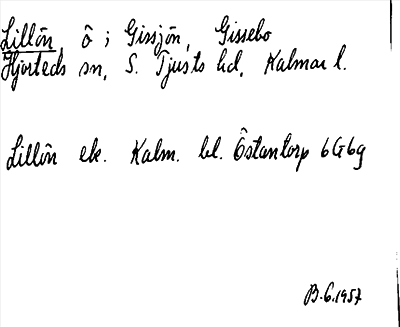 Lillön, ö i Gissjön, Gissebo
Hjorteds sn, S. Tjusts hd, Kalmar l.
Lillön ek. Kalm. bl. Östantorp 6G6g
B.G.1957